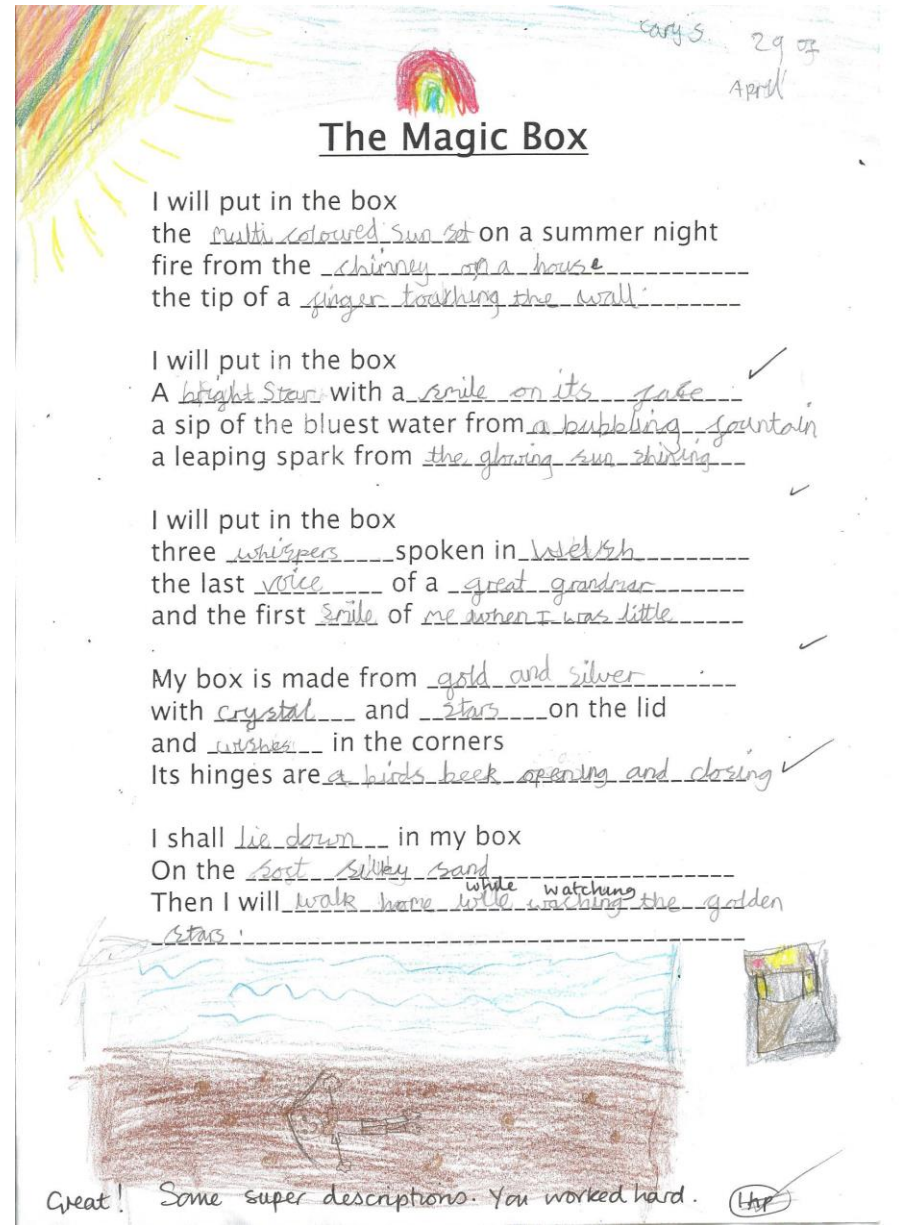 Carys. 29 of
April
The Magic Box
I will put in the box
the multi coloured sun set on a summer night
fire from the chinney on a house
the tip of a finger touching the wall.
I will put in the box
A bright Star with a smile on its fase
a sip of the bluest water from a bubbling fountain
a leaping spark from the glowing sun shining
I will put in the box
three whispers spoken in Welsh
the last voice of a great grandmar
and the first smile of me when I was little
My box is made from gold and silver
with crystal and stars on the lid
and wishes in the corners
Its hinges are a birds beek opening and closing
I shall lie down in my box
On the soft silky sand
while watching
Then I will walk home wile waching the golden
stars.
Great! Some super descriptions. You worked hard.